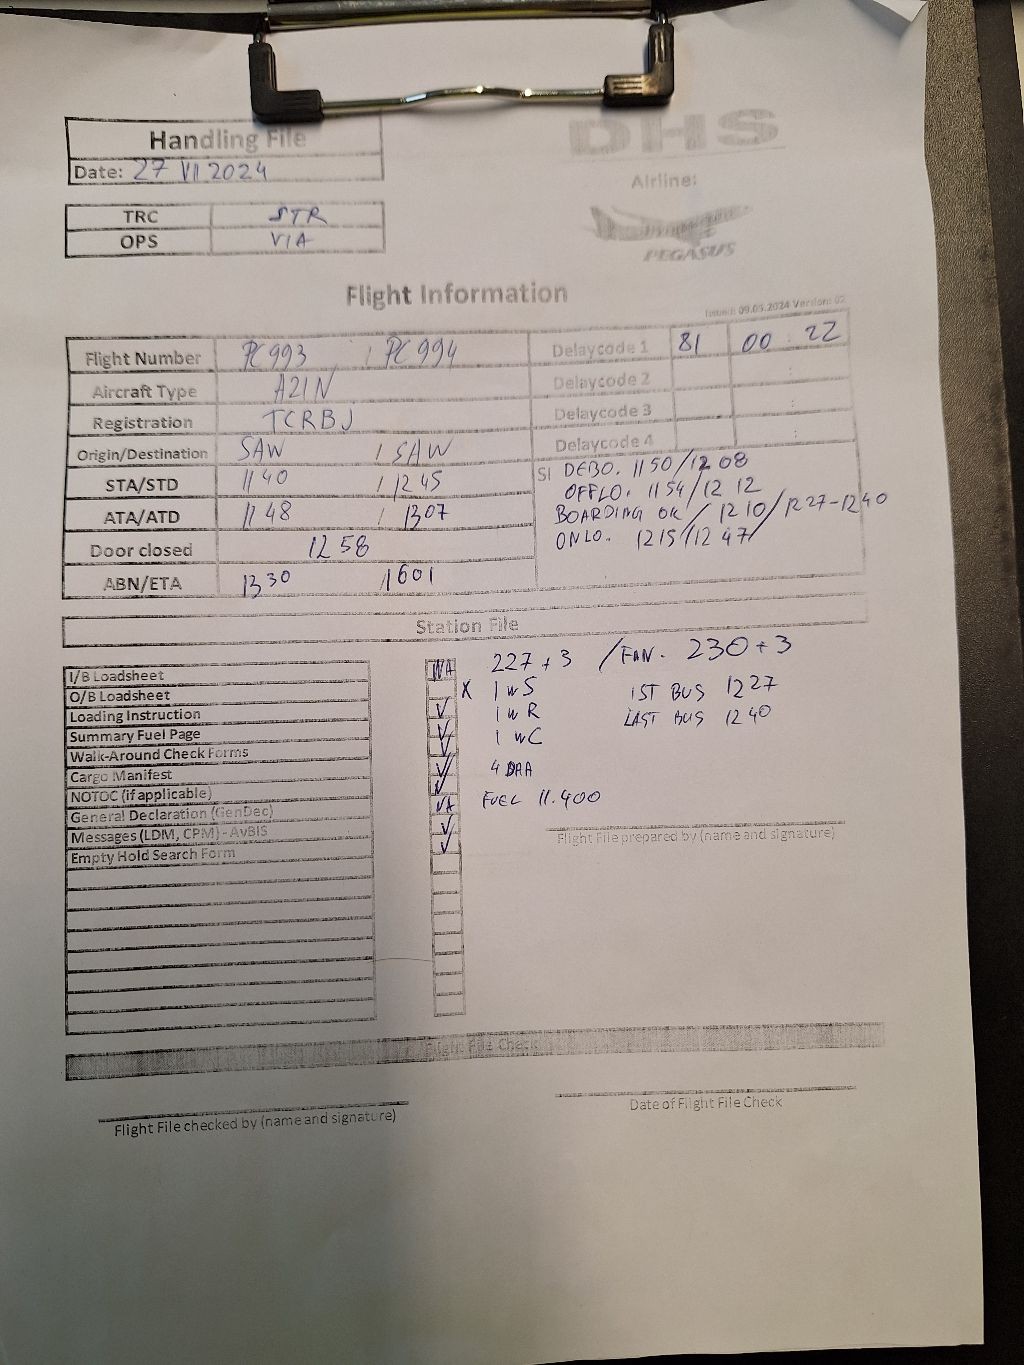 Handling File
DHS
Date: 27 VI 2024
Airline:
TRC STR
OPS VIA
PEGASUS
Flight Information
Issued: 09.05.2024 Version: 02
Flight Number PC993 / PC994 Delaycode 1 81 00 : 22
Aircraft Type A21N Delaycode 2 :
Registration TCRBJ Delaycode 3 :
Origin/Destination SAW / SAW Delaycode 4 :
STA/STD 1140 / 1245
ATA/ATD 1148 / 1307
Door closed 1258
ABN/ETA 1330 / 1601
SI DEBO. 1150/1208
OFFLO. 1154/1212
BOARDING OK / 1210/1227-1240
ONLO. 1215/1247/
Station File
I/B Loadsheet NA 227 + 3 / FIN. 230 + 3
O/B Loadsheet X 1 WS 1ST BUS 1227
Loading Instruction 1 WR LAST BUS 1240
Summary Fuel Page 1 WC
Walk-Around Check Forms
Cargo Manifest 4 DAA
NOTOC (if applicable) FUEL 11.400
General Declaration (GenDec) NA
Messages (LDM, CPM) - AvBIS
Empty Hold Search Form
Flight File prepared by (name and signature)
Flight File Check
Flight File checked by (name and signature) Date of Flight File Check